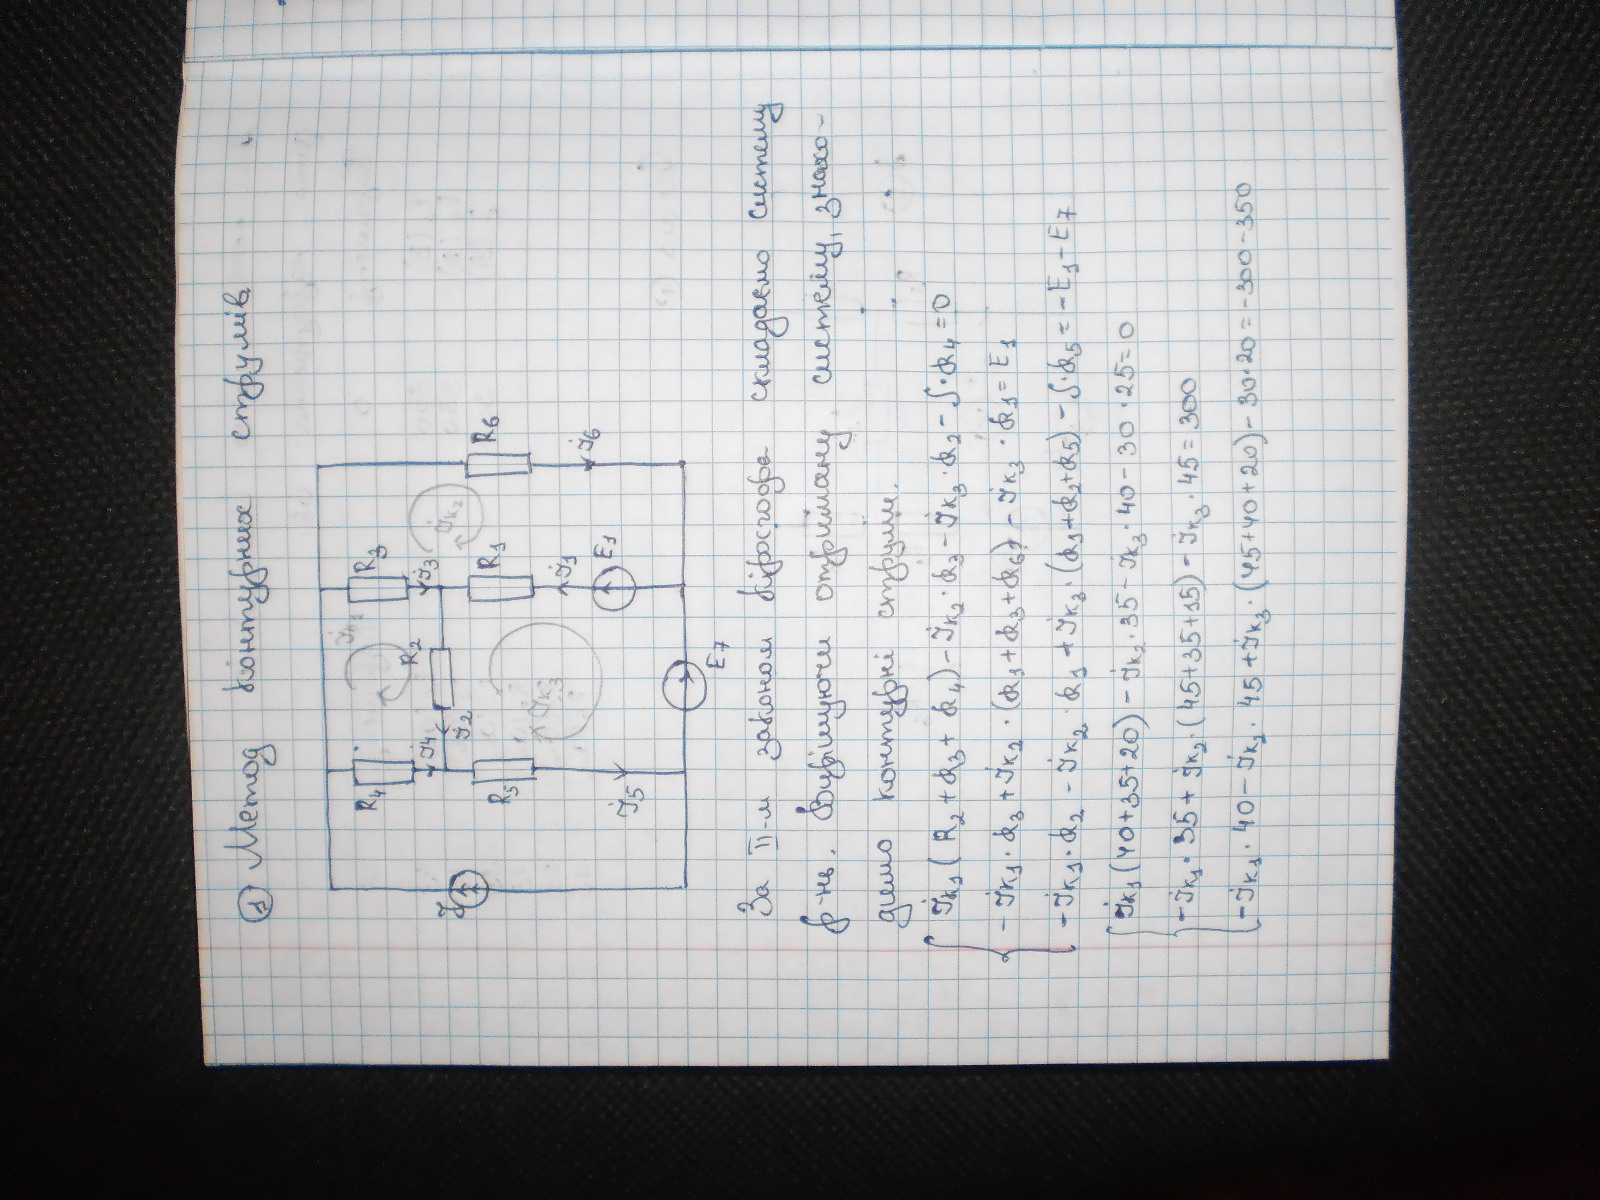 ① Метод контурних струмів
J
R4
R3
R6
İk1
İk2
İ4
İ3
R2
İ2
R5
R1
İ6
İk3
İ1
İ5
E1
E7
За II-м законом Кірхгофа складаємо систему
р-нь. Вирішуючи отриману систему, знахо-
димо контурні струми.
İk1(R2+R3+R4)-İk2·R3-İk3·R2-J·R4=0
-İk1·R3+İk2·(R1+R3+R6)-İk3·R1=E1
-İk1·R2-İk2·R1+İk3·(R1+R2+R5)-J·R5=-E1-E7
İk1(40+35+20)-İk2·35-İk3·40-30·25=0
-İk1·35+İk2·(45+35+15)-İk3·45=300
-İk1·40-İk2·45+İk3·(45+40+20)-30·20=-300-350